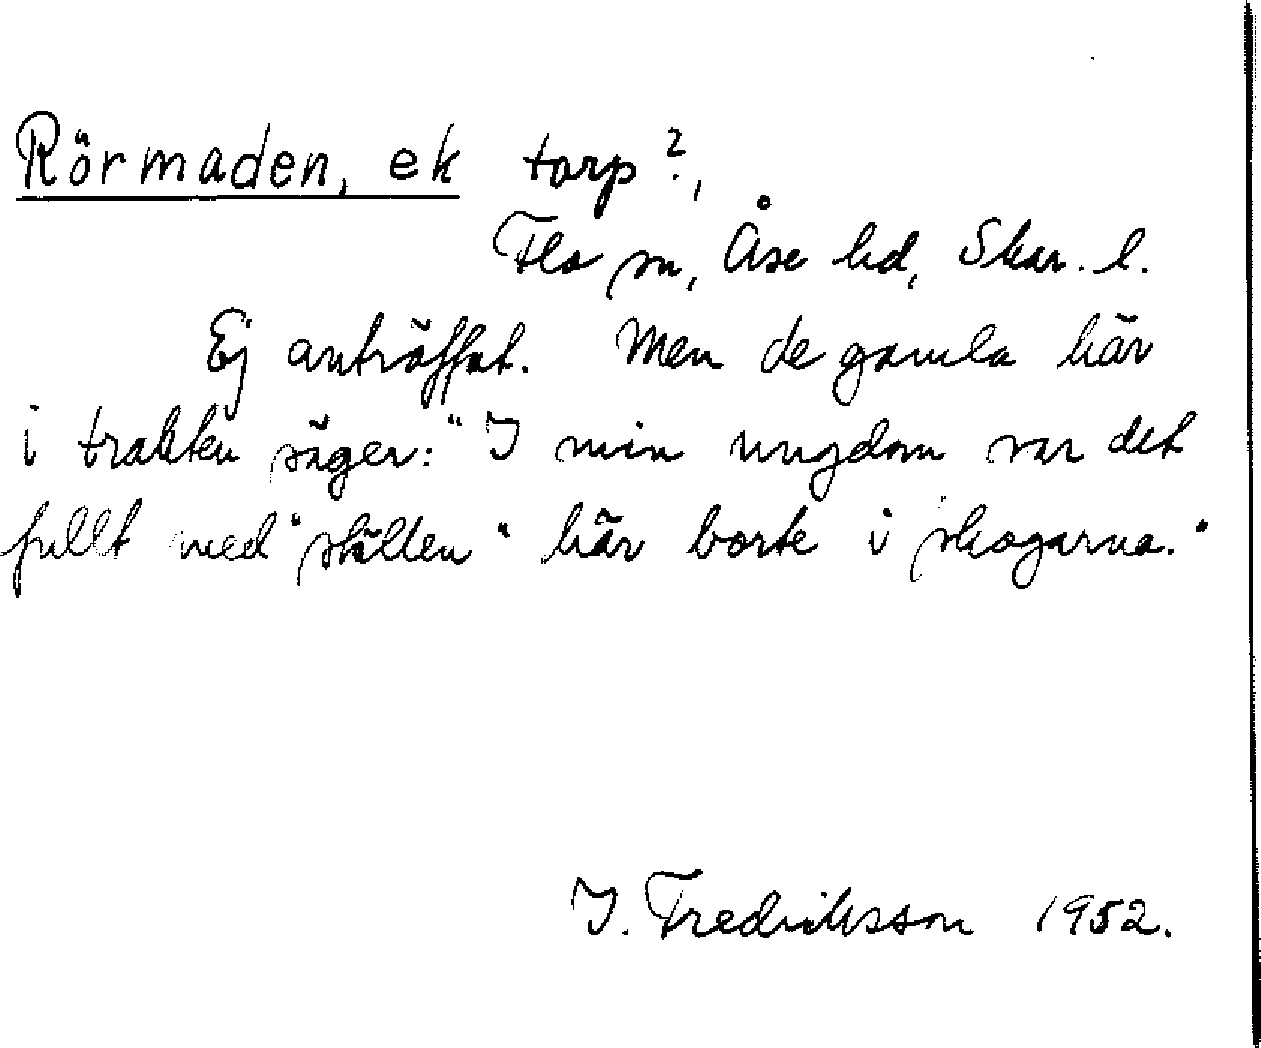 Rörmaden, ek torp?,
Flo sn, Åse hd, Skar. l.
Ej anträffat. Men de gamla här
i trakten säger: "I min ungdom var det
fullt med "ställen" här borte i skogarna."
I. Fredriksson 1952.